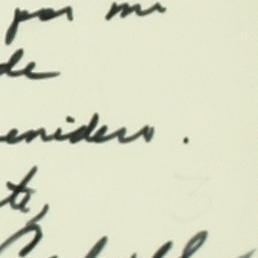 por mi
de
enidero.
te,